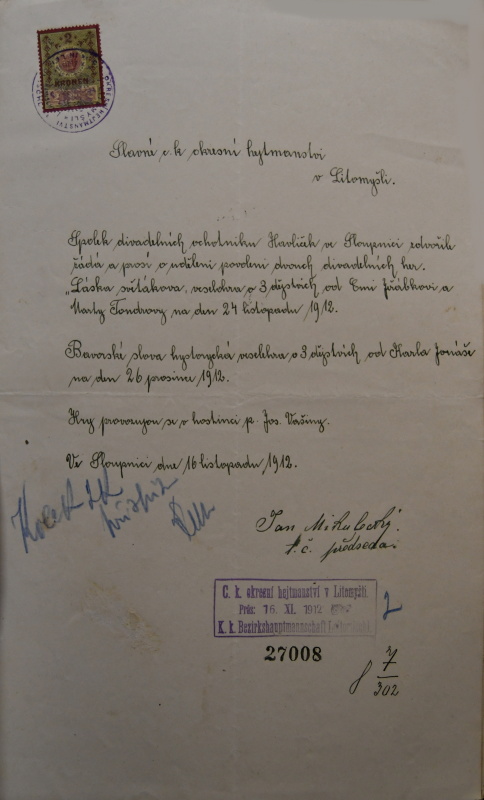 2
KRONEN
Slavné c. k. okresní hejtmanství
v Litomyšli.
Spolek divadelních ochotniku Havlíček ve Sloupnici zdvořile
žádá a prosí o udělení povolení dvouch divadelních her.
„Láska silákova, veselohra o 3 dějstvích od Emi Jeřábkovi a
Marty Tondrovy na den 24 listopadu 1912.
Bavorské slova hystorycká veselohra o 3 dějstvích od Karla Jonáše
na den 26 prosince 1912.
Hry provozujou se v hostinci p. Jos. Vašiny.
Ve Sloupnici dne 16 listopadu 1912.
Kolek 2K
Jan Mikulecký.
t. č. předseda.
C. k. okresní hejtmanství v Litomyšli.
Präs: 16. XI. 1912
K. k. Bezirkshauptmannschaft Leitomischl
2
27008
7
302